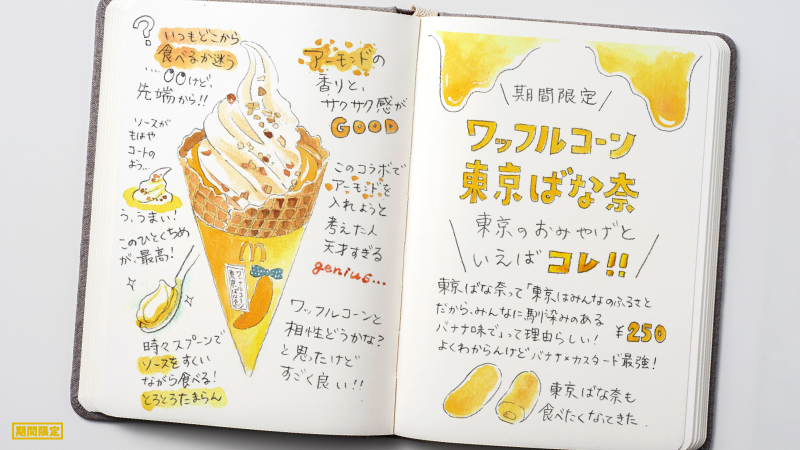 ?
いつもどこから
食べるか迷う
けど、
先端から!!
ソースが
もはや
コートの
よう…
う、うまい!
このひとくちめ
が、最高!
時々スプーンで
ソースをすくい
ながら食べる!
とろとろたまらん
アーモンドの
香りと、
サクサク感が
GOOD
このコラボで
アーモンドを
入れようと
考えた人
天才すぎる
genius...
ワッフルコーン
東京ばな奈
ワッフルコーンと
相性どうかな?
と思ったけど
すごく良い!!
期間限定
ワッフルコーン
東京ばな奈
東京のおみやげと
いえばコレ!!
東京ばな奈って「東京はみんなのふるさと
だから、みんなに馴染みのある
バナナ味で」って理由らしい!
よくわからんけどバナナ×カスタード最強!
¥250
東京ばな奈も
食べたくなってきた.
期間限定